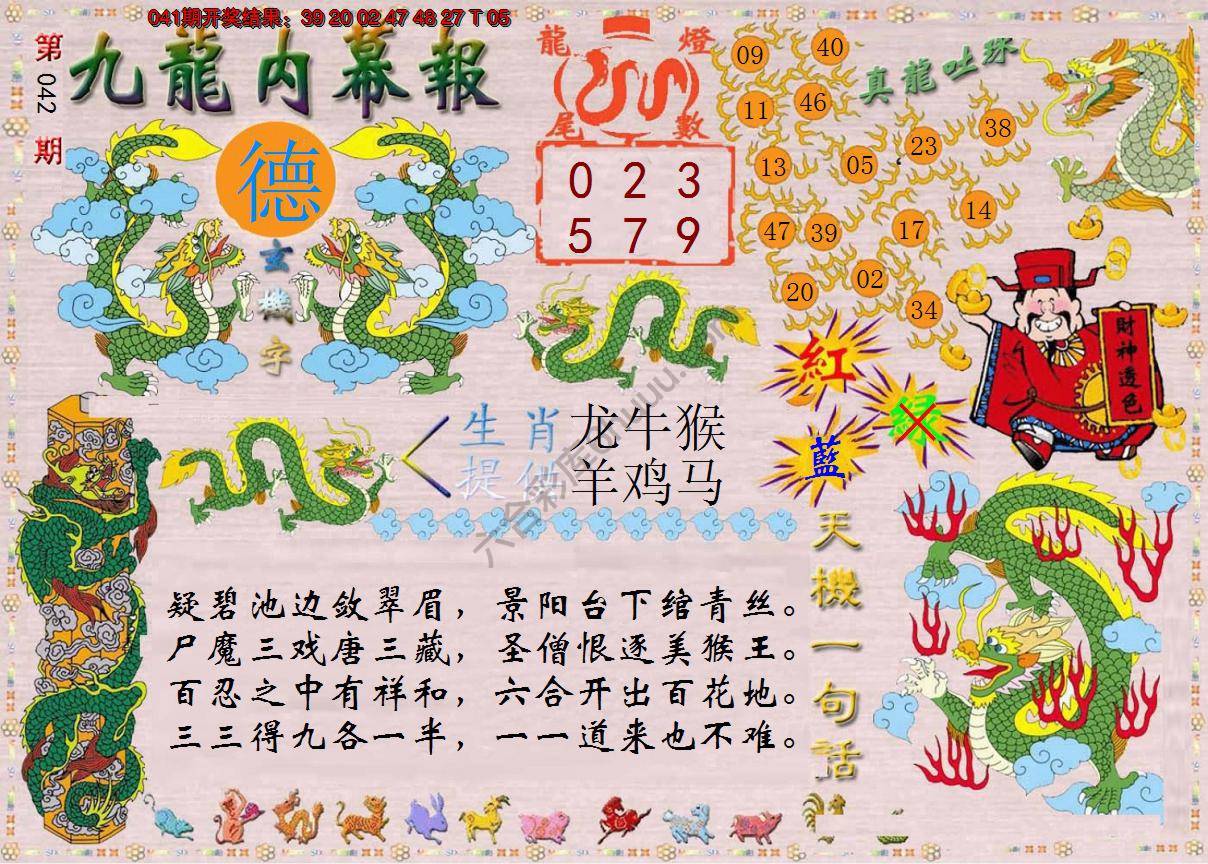 041期开奖结果：39 20 02 47 48 27 T 05
第042期
九龍内幕報
德
玄機字
龍燈尾數
0 2 3
5 7 9
真龍吐珠
09 40
11 46
13 05 23 38
47 39 17 14
20 02 34
財神透色
紅
绿
藍
生肖 龙牛猴
提供 羊鸡马
天機一句話
疑碧池边敛翠眉，景阳台下绾青丝。
尸魔三戏唐三藏，圣僧恨逐美猴王。
百忍之中有祥和，六合开出百花地。
三三得九各一半，一一道来也不难。